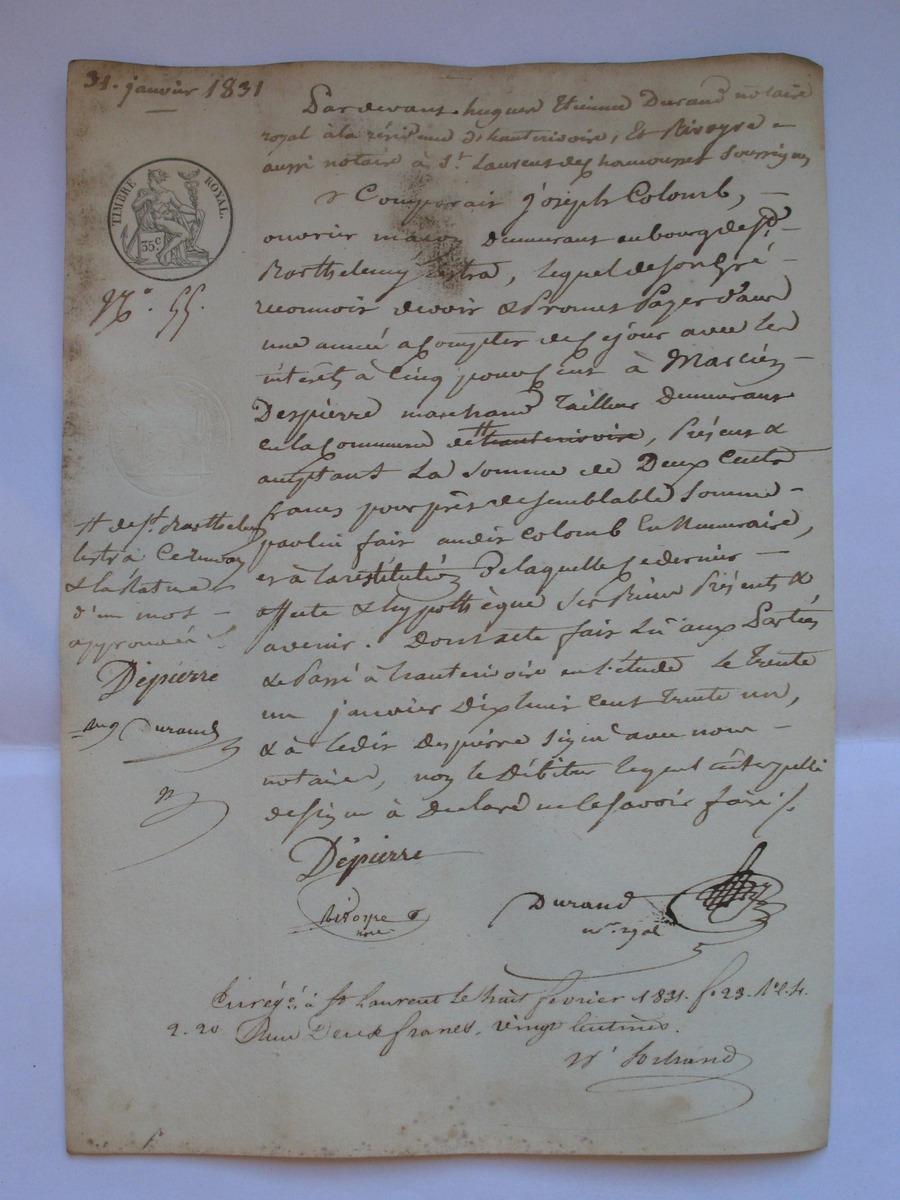 31. janvier 1831
Pardevant hugues Etienne Durand notaire
royal à la résidence d'hauterivoire, Et Rivoyre
aussi notaire à St. Laurent de chamousset soussignés
Comparait joseph Colomb,
ouvrier maçon demeurant au bourg de St.
Barthelemy lestra, lequel de son gré
reconnoit devoir & Promet Payer d'aus
une année a compter de ce jour avec les
intérêts à Cinq pour Cent à
Despierre marchand Tailleur Demeurant
en la Commune de hauterivoire, Présent &
aceptant La somme de Deux Cents
francs pour prêt de semblable Somme
par lui fait audit Colomb En Numeraire,
et à la restitution De laquelle ce dernier
affecte & hypothèque ses Biens Présents &
avenir. Dont acte fait Lu aux Parties
& Passé à hauterivoire en l'étude Le Trente
un janvier Dix huit Cent Trente un,
& à ledit Despierre Signé avec nous
notaires, non le Débiteur lequel interpellé
de signer à Declaré ne le savoir faire
Dépierre
Rivoyre
nore
Durand
nre. royal
Enregé. à St Laurent le huit fevrier 1831. f. 23.
2. 20 Reçu Deux francs. vingt Centimes.
TIMBRE ROYAL.
35.c
No. 55.
de St. Barthelemy
lestra Ce renvoi
& la Rature
d'un mot
approuvés
Dépierre
Durand